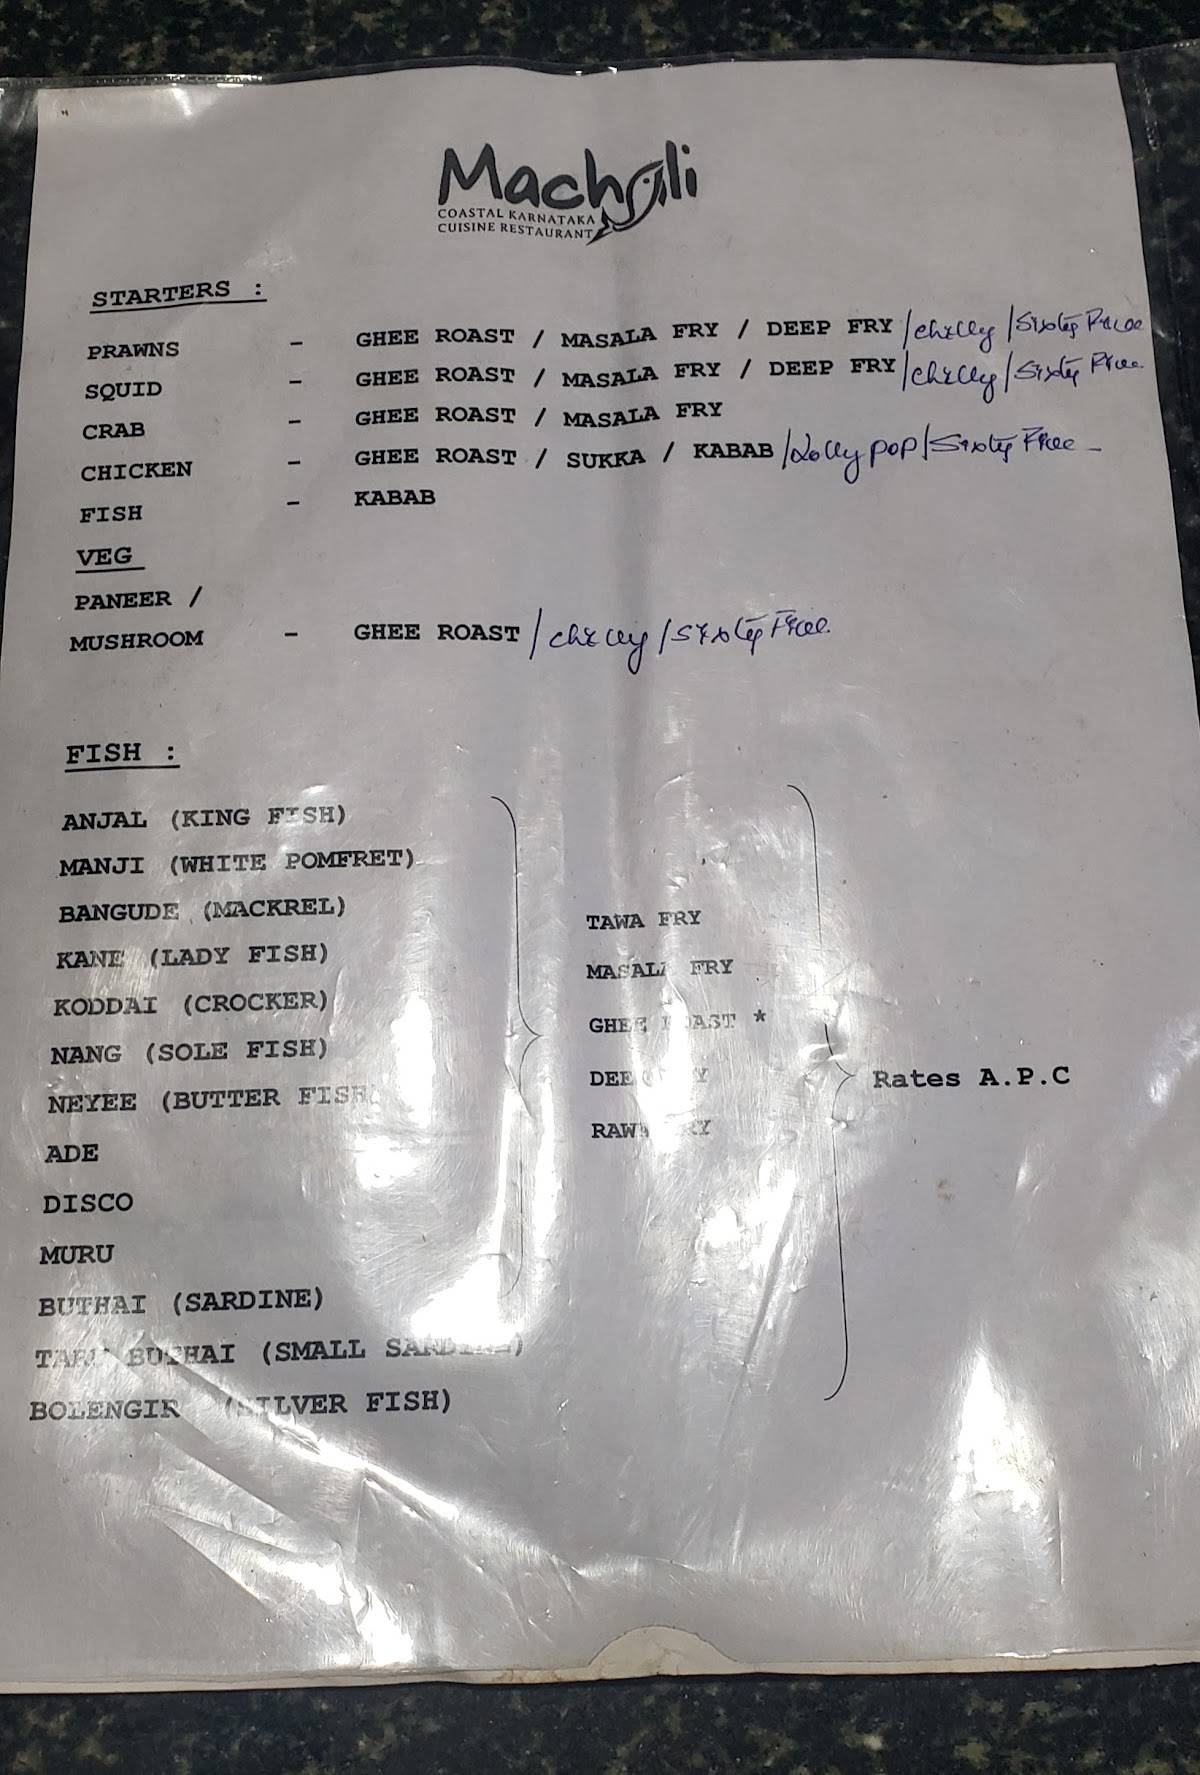 Machali
COASTAL KARNATAKA
CUISINE RESTAURANT
STARTERS :
PRAWNS - GHEE ROAST / MASALA FRY / DEEP FRY / chilly / Sixty Five
SQUID - GHEE ROAST / MASALA FRY / DEEP FRY / chilly / Sixty Five
CRAB - GHEE ROAST / MASALA FRY
CHICKEN - GHEE ROAST / SUKKA / KABAB / Lolly pop / Sixty Five -
FISH - KABAB
VEG
PANEER /
MUSHROOM - GHEE ROAST / chilly / Sixty Five
FISH :
ANJAL (KING FISH)
MANJI (WHITE POMFRET)
BANGUDE (MACKREL)
KANE (LADY FISH)
KODDAI (CROCKER)
NANG (SOLE FISH)
NEYEE (BUTTER FISH
ADE
DISCO
MURU
BUTHAI (SARDINE)
TARU BUTHAI (SMALL SARDINE)
BOLENGIR (SILVER FISH)
TAWA FRY
MASALA FRY
GHEE ROAST *
DEEP FRY
RAWA FRY
Rates A.P.C